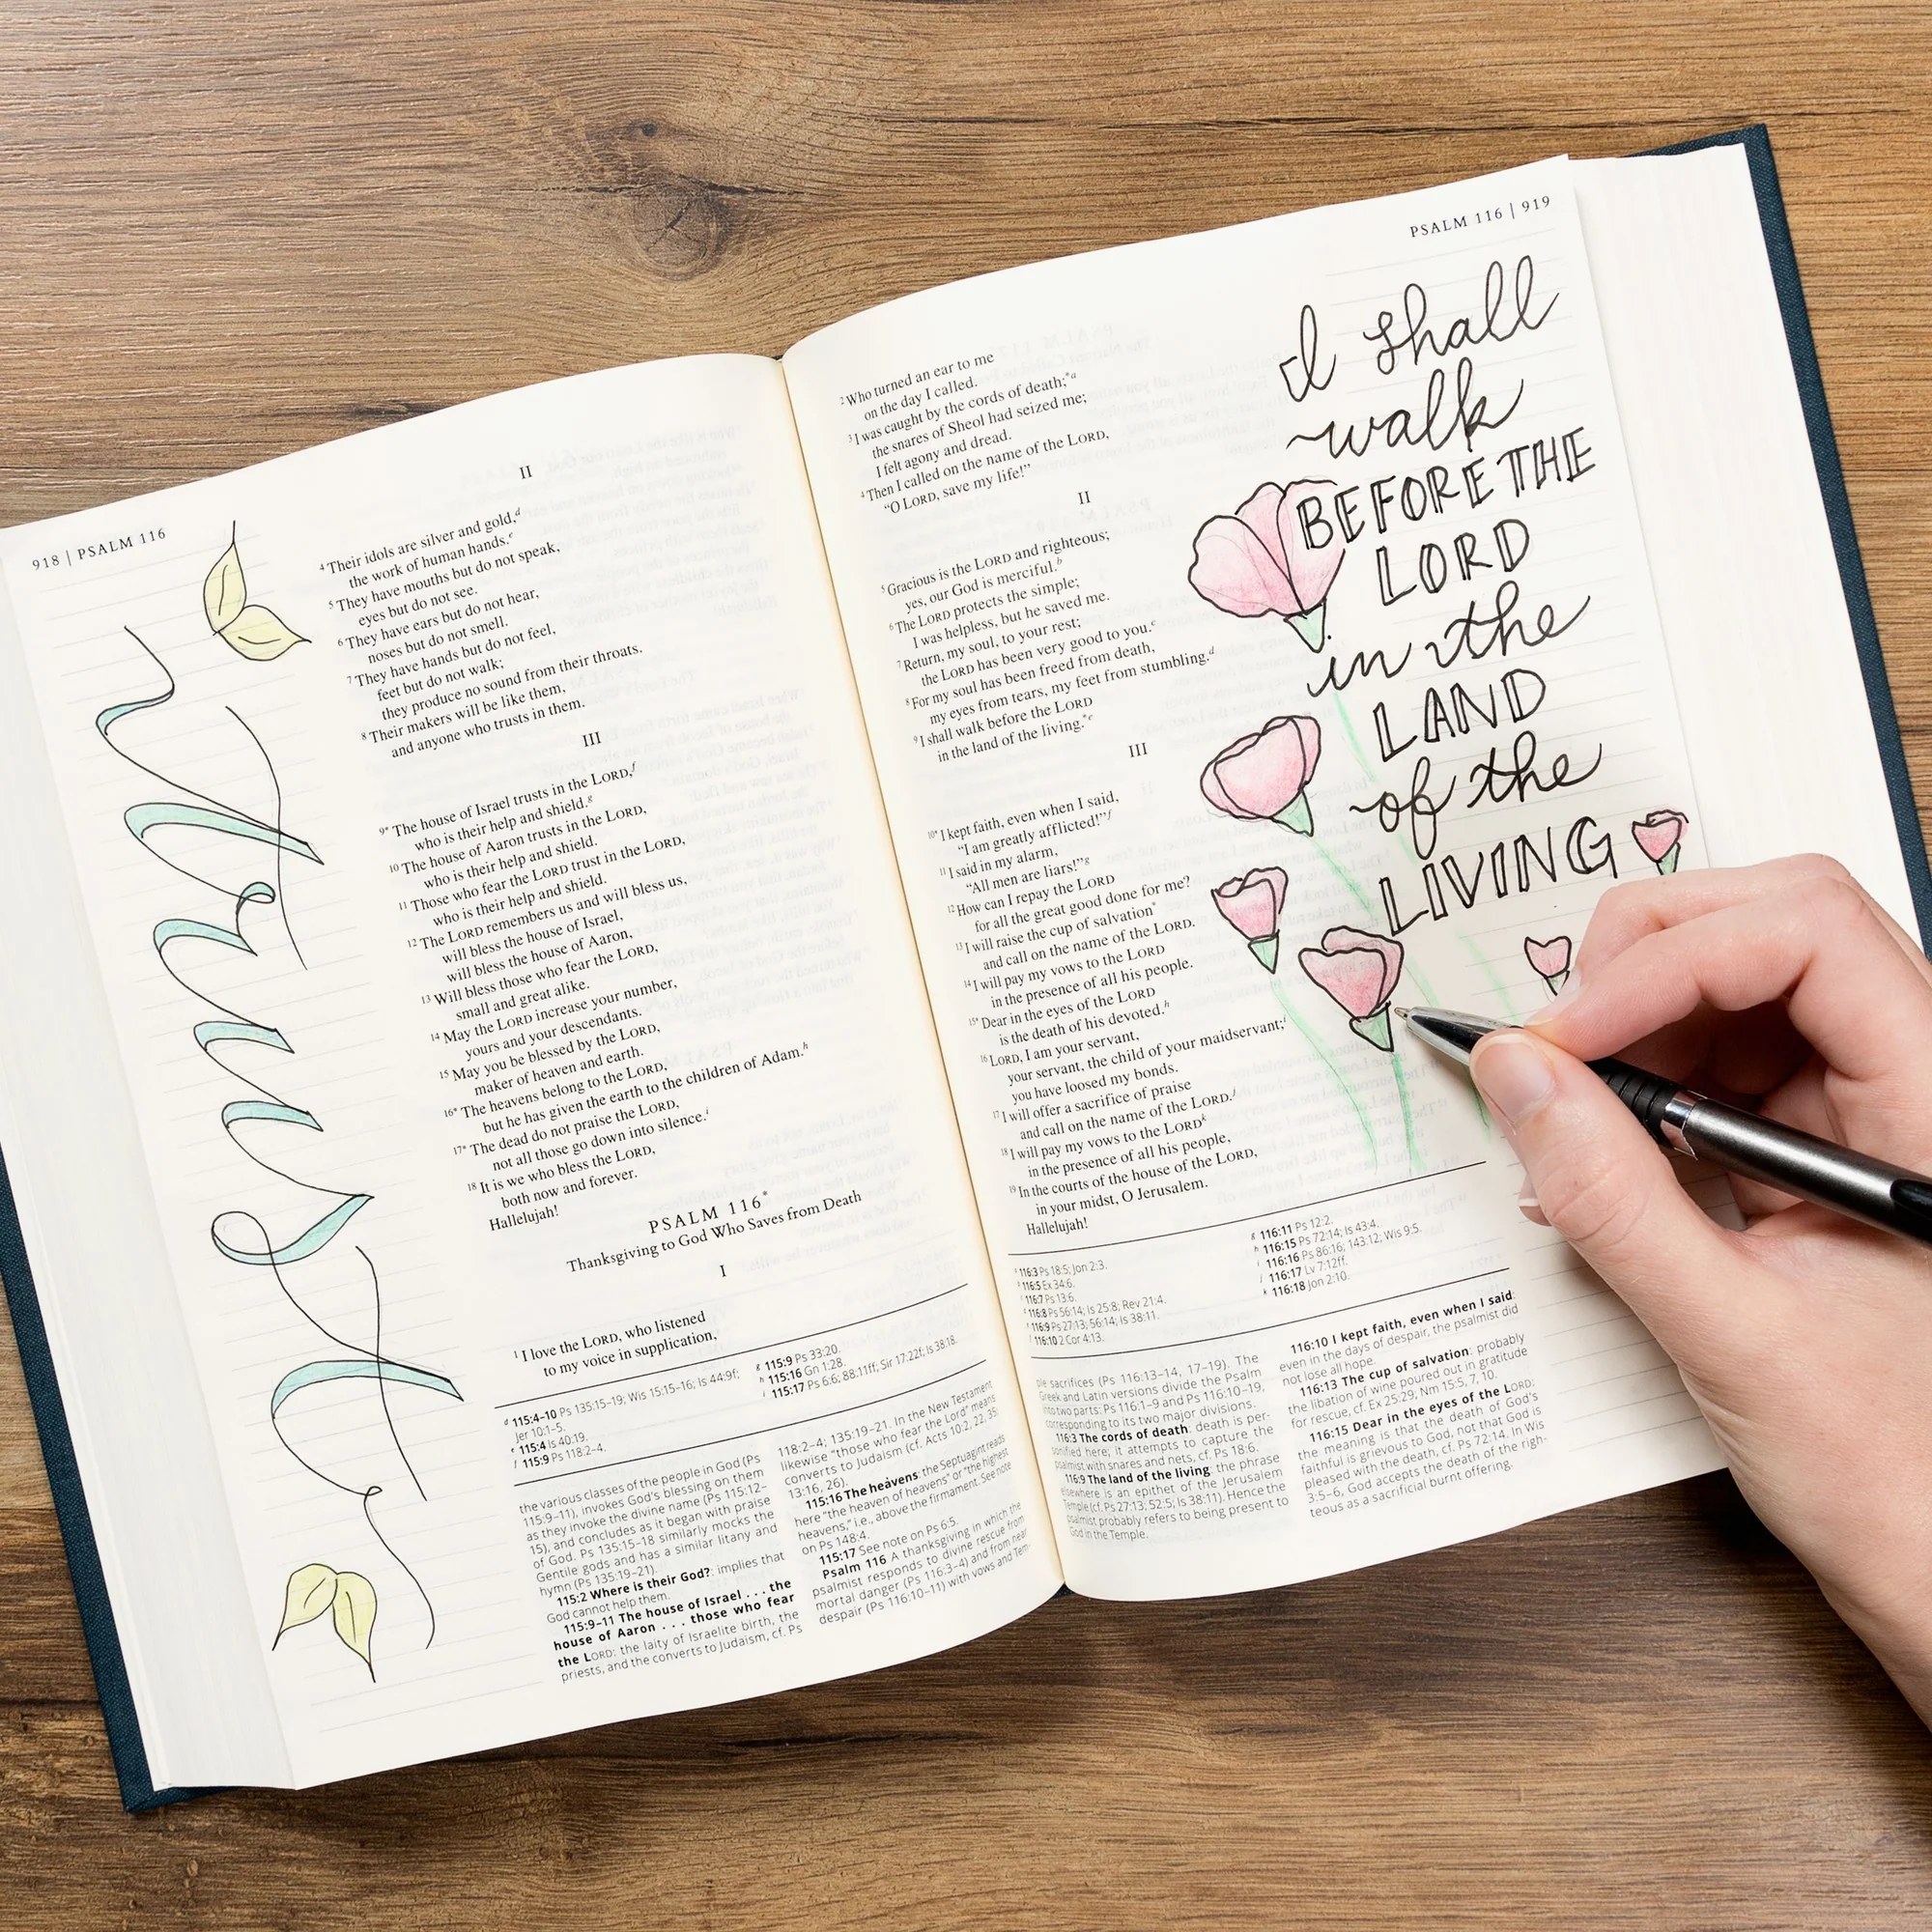 918 | PSALM 116
trust
II
4 Their idols are silver and gold,d
the work of human hands.e
5 They have mouths but do not speak,
eyes but do not see.
6 They have ears but do not hear,
noses but do not smell.
7 They have hands but do not feel,
feet but do not walk;
they produce no sound from their throats.
8 Their makers will be like them,
and anyone who trusts in them.
III
9* The house of Israel trusts in the LORD,f
who is their help and shield.g
10 The house of Aaron trusts in the LORD,
who is their help and shield.
11 Those who fear the LORD trust in the LORD,
who is their help and shield.
12 The LORD remembers us and will bless us,
will bless the house of Israel,
will bless the house of Aaron,
13 Will bless those who fear the LORD,
small and great alike.
14 May the LORD increase your number,
yours and your descendants.
15 May you be blessed by the LORD,
maker of heaven and earth.
16* The heavens belong to the LORD,
but he has given the earth to the children of Adam.h
17* The dead do not praise the LORD,
not all those go down into silence.i
18 It is we who bless the LORD,
both now and forever.
Hallelujah!
PSALM 116*
Thanksgiving to God Who Saves from Death
I
1 I love the LORD, who listened
to my voice in supplication,
d 115:4–10 Ps 135:15–19; Wis 15:15–16; Is 44:9f;
Jer 10:1–5.
e 115:4 Is 40:19.
f 115:9 Ps 118:2–4.
g 115:9 Ps 33:20.
h 115:16 Gn 1:28.
i 115:17 Ps 6:6; 88:11ff; Sir 17:22f; Is 38:18.
the various classes of the people in God (Ps
115:9–11), invokes God's blessing on them
as they invoke the divine name (Ps 115:12–
15), and concludes as it began with praise
of God. Ps 135:15–18 similarly mocks the
Gentile gods and has a similar litany and
hymn (Ps 135:19–21).
115:2 Where is their God?: implies that
God cannot help them.
115:9–11 The house of Israel . . . the
house of Aaron . . . those who fear
the LORD: the laity of Israelite birth, the
priests, and the converts to Judaism, cf. Ps
118:2–4; 135:19–21. In the New Testament
likewise "those who fear the Lord" means
converts to Judaism (cf. Acts 10:2, 22, 35;
13:16, 26).
115:16 The heavens: the Septuagint reads
here "the heaven of heavens" or "the highest
heavens," i.e., above the firmament. See note
on Ps 148:4.
115:17 See note on Ps 6:5.
Psalm 116 A thanksgiving in which the
psalmist responds to divine rescue from
mortal danger (Ps 116:3–4) and from near
despair (Ps 116:10–11) with vows and Tem-
PSALM 116 | 919
2 Who turned an ear to me
on the day I called.
3 I was caught by the cords of death;*a
the snares of Sheol had seized me;
I felt agony and dread.
4 Then I called on the name of the LORD,
"O LORD, save my life!"
II
5 Gracious is the LORD and righteous;
yes, our God is merciful.b
6 The LORD protects the simple;
I was helpless, but he saved me.
7 Return, my soul, to your rest;
the LORD has been very good to you.c
8 For my soul has been freed from death,
my eyes from tears, my feet from stumbling.d
9 I shall walk before the LORD
in the land of the living.*e
III
10* I kept faith, even when I said,
"I am greatly afflicted!"f
11 I said in my alarm,
"All men are liars!"g
12 How can I repay the LORD
for all the great good done for me?
13 I will raise the cup of salvation*
and call on the name of the LORD.
14 I will pay my vows to the LORD
in the presence of all his people.
15* Dear in the eyes of the LORD
is the death of his devoted.h
16 LORD, I am your servant,
your servant, the child of your maidservant;i
you have loosed my bonds.
17 I will offer a sacrifice of praise
and call on the name of the LORD.j
18 I will pay my vows to the LORDk
in the presence of all his people,
19 In the courts of the house of the LORD,
in your midst, O Jerusalem.
Hallelujah!
I shall
walk
BEFORE THE
LORD
in the
LAND
of the
LIVING
116:3 Ps 18:5; Jon 2:3.
116:5 Ex 34:6.
116:7 Ps 13:6.
116:8 Ps 56:14; Is 25:8; Rev 21:4.
116:9 Ps 27:13; 56:14; Is 38:11.
116:10 2 Cor 4:13.
g 116:11 Ps 12:2.
h 116:15 Ps 72:14; Is 43:4.
i 116:16 Ps 86:16; 143:12; Wis 9:5.
j 116:17 Lv 7:12ff.
k 116:18 Jon 2:10.
ple sacrifices (Ps 116:13–14, 17–19). The
Greek and Latin versions divide the Psalm
into two parts: Ps 116:1–9 and Ps 116:10–19,
corresponding to its two major divisions.
116:3 The cords of death: death is per-
sonified here; it attempts to capture the
psalmist with snares and nets, cf. Ps 18:6.
116:9 The land of the living: the phrase
elsewhere is an epithet of the Jerusalem
Temple (cf. Ps 27:13; 52:5; Is 38:11). Hence the
psalmist probably refers to being present to
God in the Temple.
116:10 I kept faith, even when I said:
even in the days of despair, the psalmist did
not lose all hope.
116:13 The cup of salvation: probably
the libation of wine poured out in gratitude
for rescue, cf. Ex 25:29; Nm 15:5, 7, 10.
116:15 Dear in the eyes of the LORD:
the meaning is that the death of God's
faithful is grievous to God, not that God is
pleased with the death, cf. Ps 72:14. In Wis
3:5–6, God accepts the death of the righ-
teous as a sacrificial burnt offering.